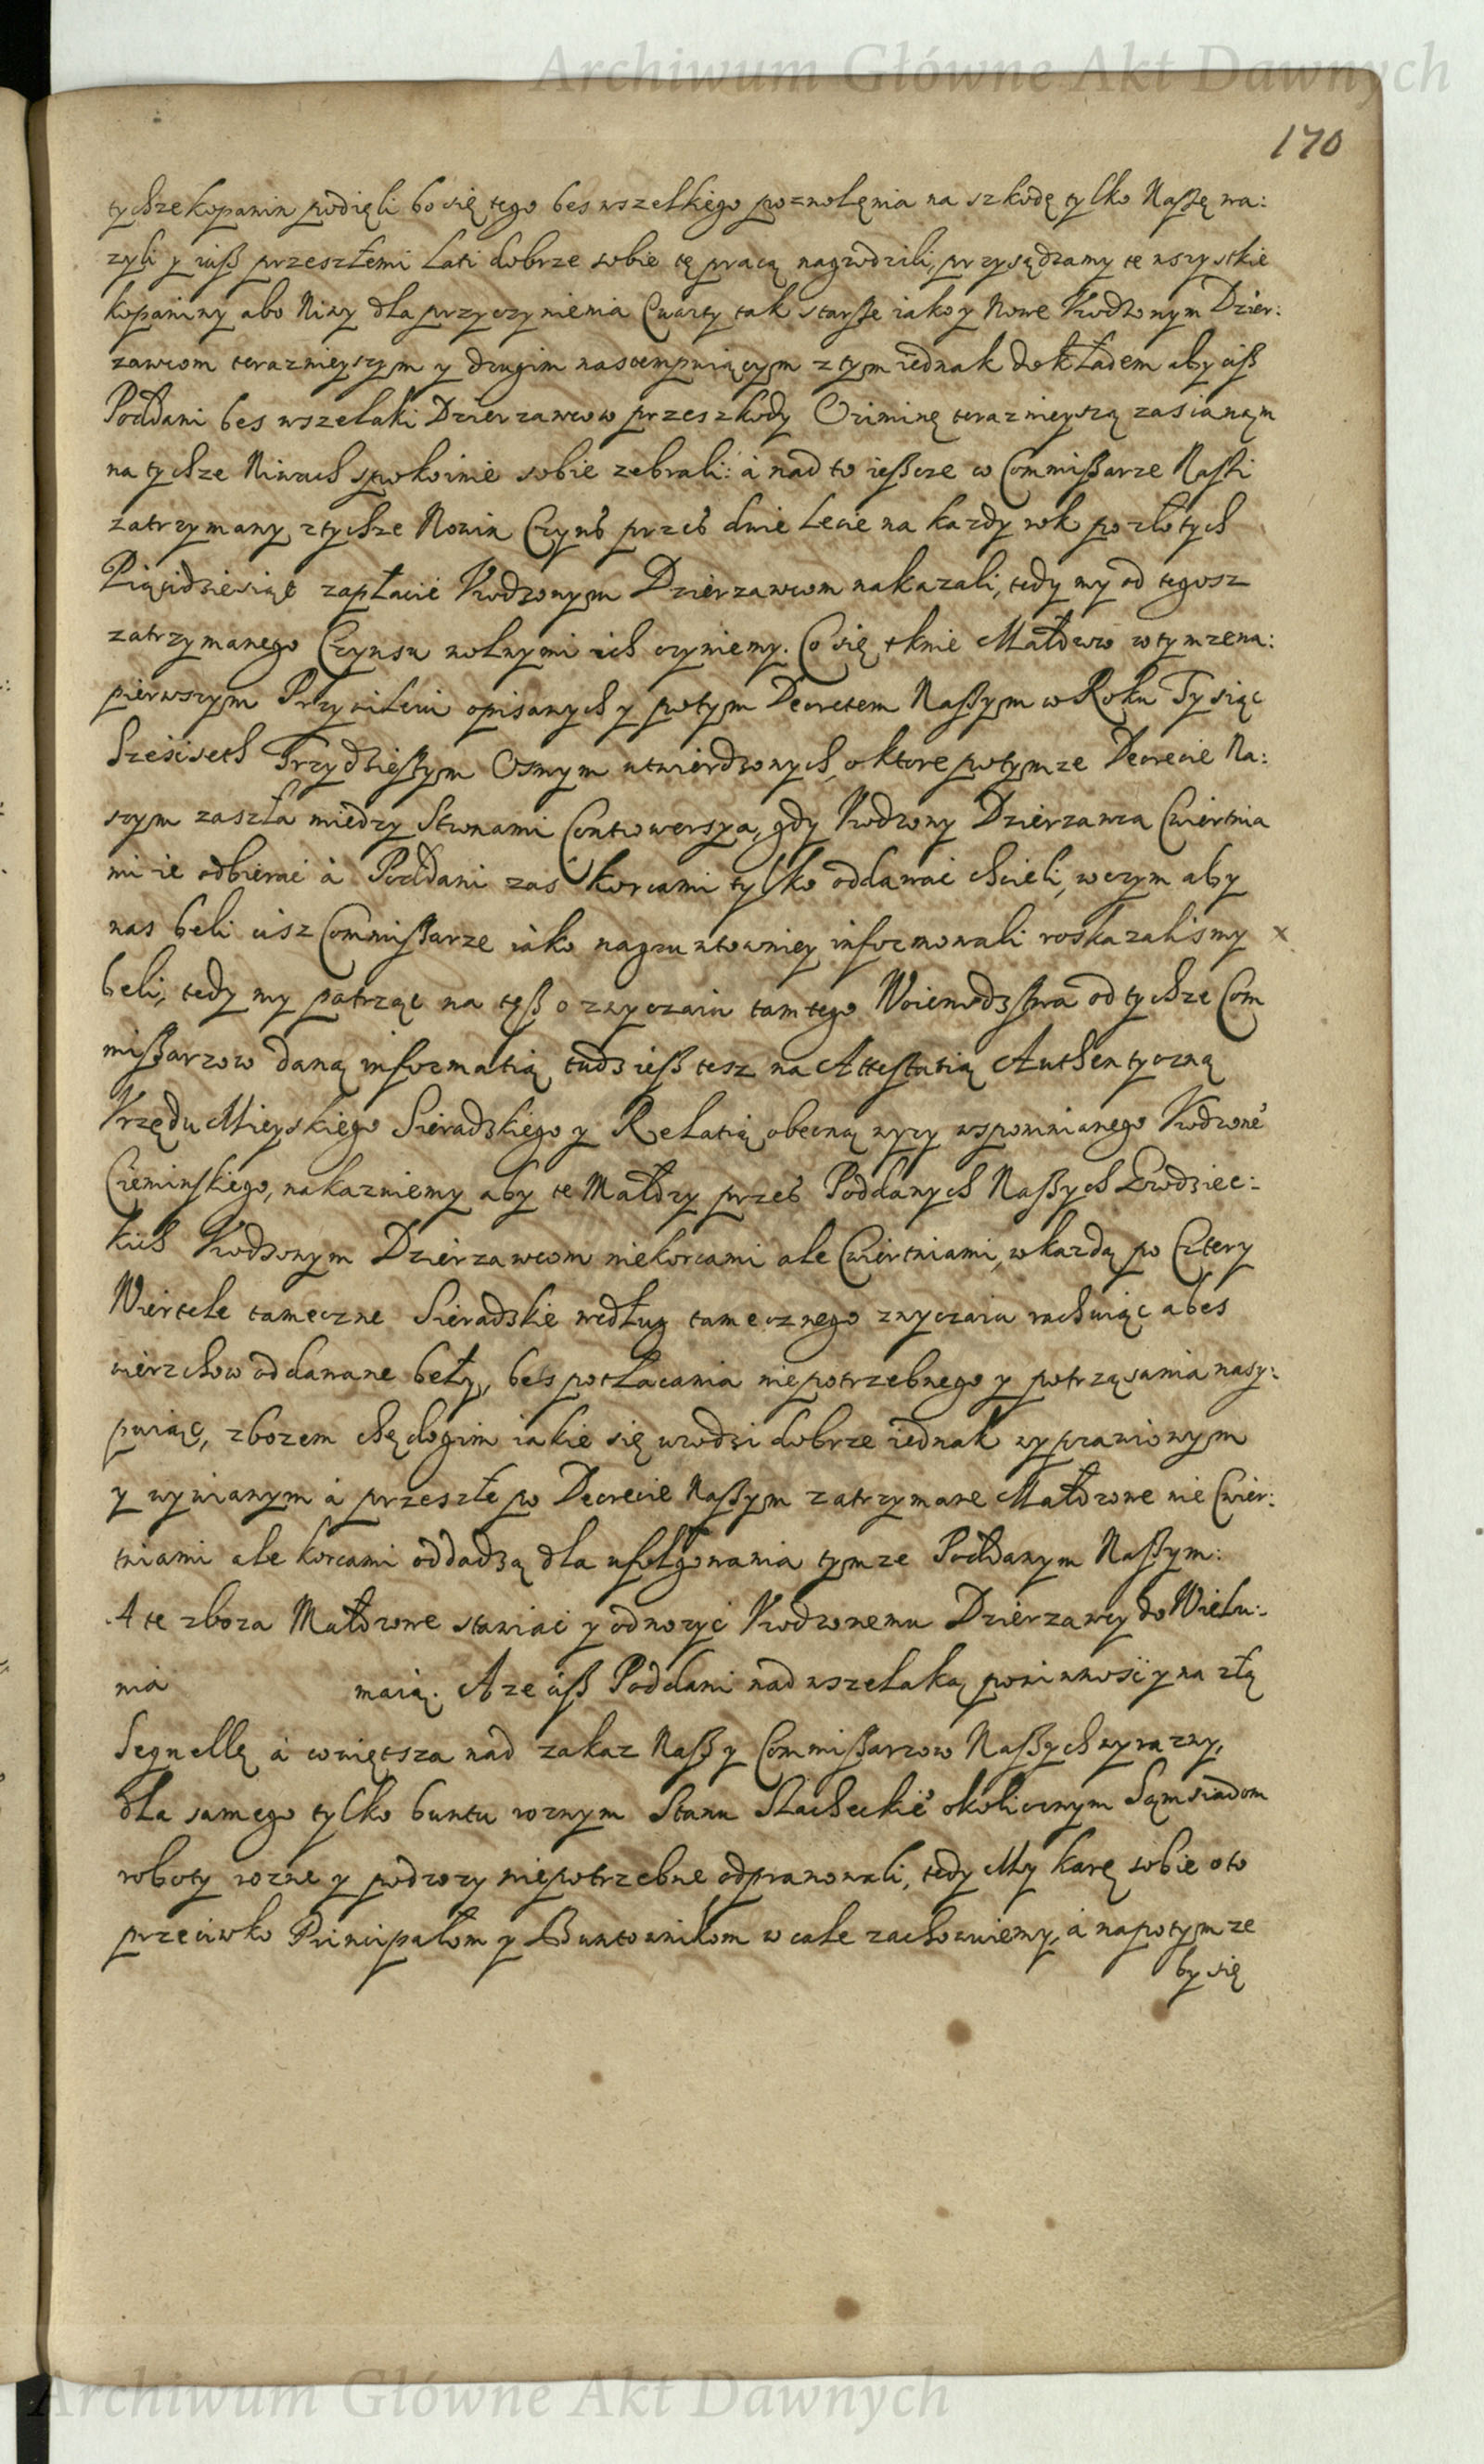 Archiwum Główne Akt Dawnych
170
tychze kopanin podięli bo się tego bes wszelkiego pozwolęnia na szkodę tylko Naszę wa:
zyli y iuß przeszłemi Lati dobrze sobie tę pracą nagrodzili, przysądzamy te wszystkie
kopaniny abo Niwy dla przyczynienia Cwarty tak starße iako y Nowe Vrodzonym Dzier:
zawcom terazniejszym y drugim nastempuiącym z tym iednak dokładem aby ciß
Poddani bes wszelaki Dzierzawcow przeszkody Oziminę terazniejszą zasianąm
na tychze Niwach spokoinie sobie zebrali: à nad to ießcze co Commißarze Naßi
zatrzymany z tychze Nowin Czynß przeß dwie Lecie na kazdy rok po złotych
Pięcidziesiąt zapłacić Vrodzonym Dzierzawcom nakazali, tedy my od tegosz
zatrzymanego Czynsu wolnymi ich czyniemy. Co się tknie Małdrow w tymze na:
pierwszym Przywileiu opisanych y potym Decretem Naßym w Roku Tysiąc
Sześćseth Trzydzießtym Osmym utwierdzonych, o ktore po tymze Decrecie Na:
szym zaszła miedzy Stronami Controwersya, gdy Vrodzony Dzierzawca Cwiertnia
mi ie odbierać à Poddani zas korcami tylko oddawać chcieli, w czym aby
nas beli cisz Commißarze iako nagruntowniey informowali roskazalismy x
beli, tedy my patrząc na tęß o zwyczaiu tamtego Woiewodztwa od tychze Com
mißarzow daną informatią tudzieß tesz na Attestatią Authentyczną
Vrzędu Mieyskiego Sieradzkiego y Relatią obecną wyzy wspomnianego Vrodzone°
Ciemińskiego, nakazuiemy aby te Małdry przeß Poddanych Naßych Grodziec:
kich Vrodzonym Dzierzawcom nie korcami ale Cwiertniami, w kazdą po Cztery
Wiertele tameczne Sieradzkie według tamecznego zwyczaiu rachuiąc a bes
wierzchow oddawane beły, bes potłacania niepotrzebnego y potrząsania nasy:
puiąc, zbozem chędogim iakie się urodzi dobrze iednak wyprawionym
y wywianym à przeszłe po Decrecie Naßym zatrzymane Małdrowe nie Cwier:
tniami ale korcami oddadzą dla ufolgowania tymze Poddanym Naßym:
A te zboza Małdrowe stawiać y odwozyć Vrodzonemu Dzierzawcy do Wielu:
nia maią. A ze ciß Poddani nad wszelaką powinność y na złą
Sequellę à co więtsza nad zakaz Naß y Commißarzow Naßych wyrazny,
dla samego tylko buntu roznym Stanu Slacheckie° okolicznym Sąmsiadom
roboty rozne y podrozy niepotrzebne odprawowali, tedy My karę sobie o to
przeciwko Principałom y Buntownikom w cale zachowuiemy, à na potym ze
by się
Archiwum Główne Akt Dawnych